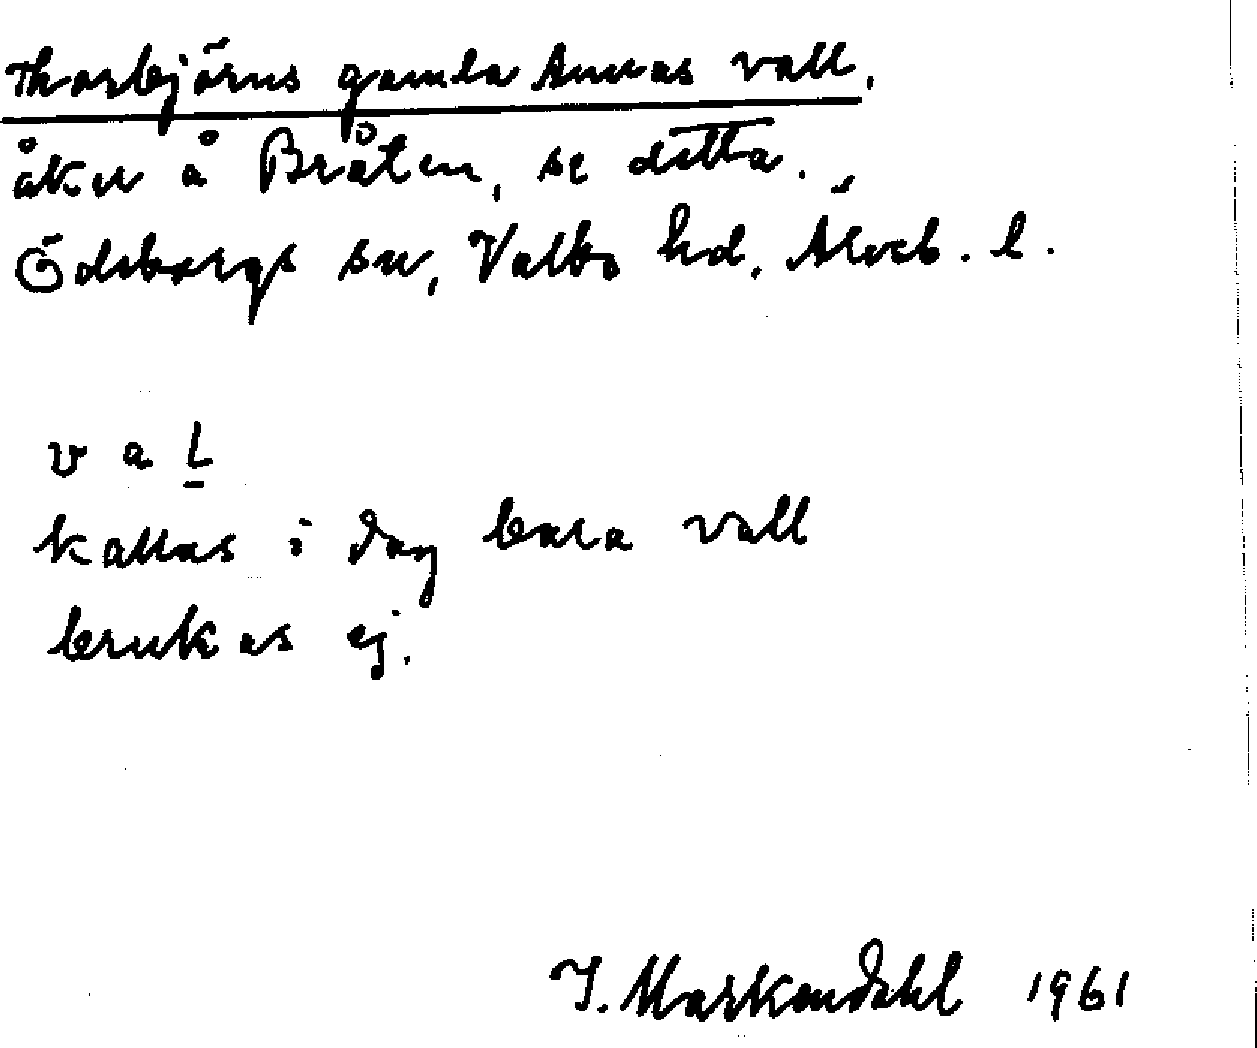 Thorbjörns gamla Annas vall,
åker å Bråten, se detta.
Ödeborgs sn, Valbo hd, Älvsb. l.
v a l
kallas i dag bara vall
brukas ej.
I. Markendahl 1961